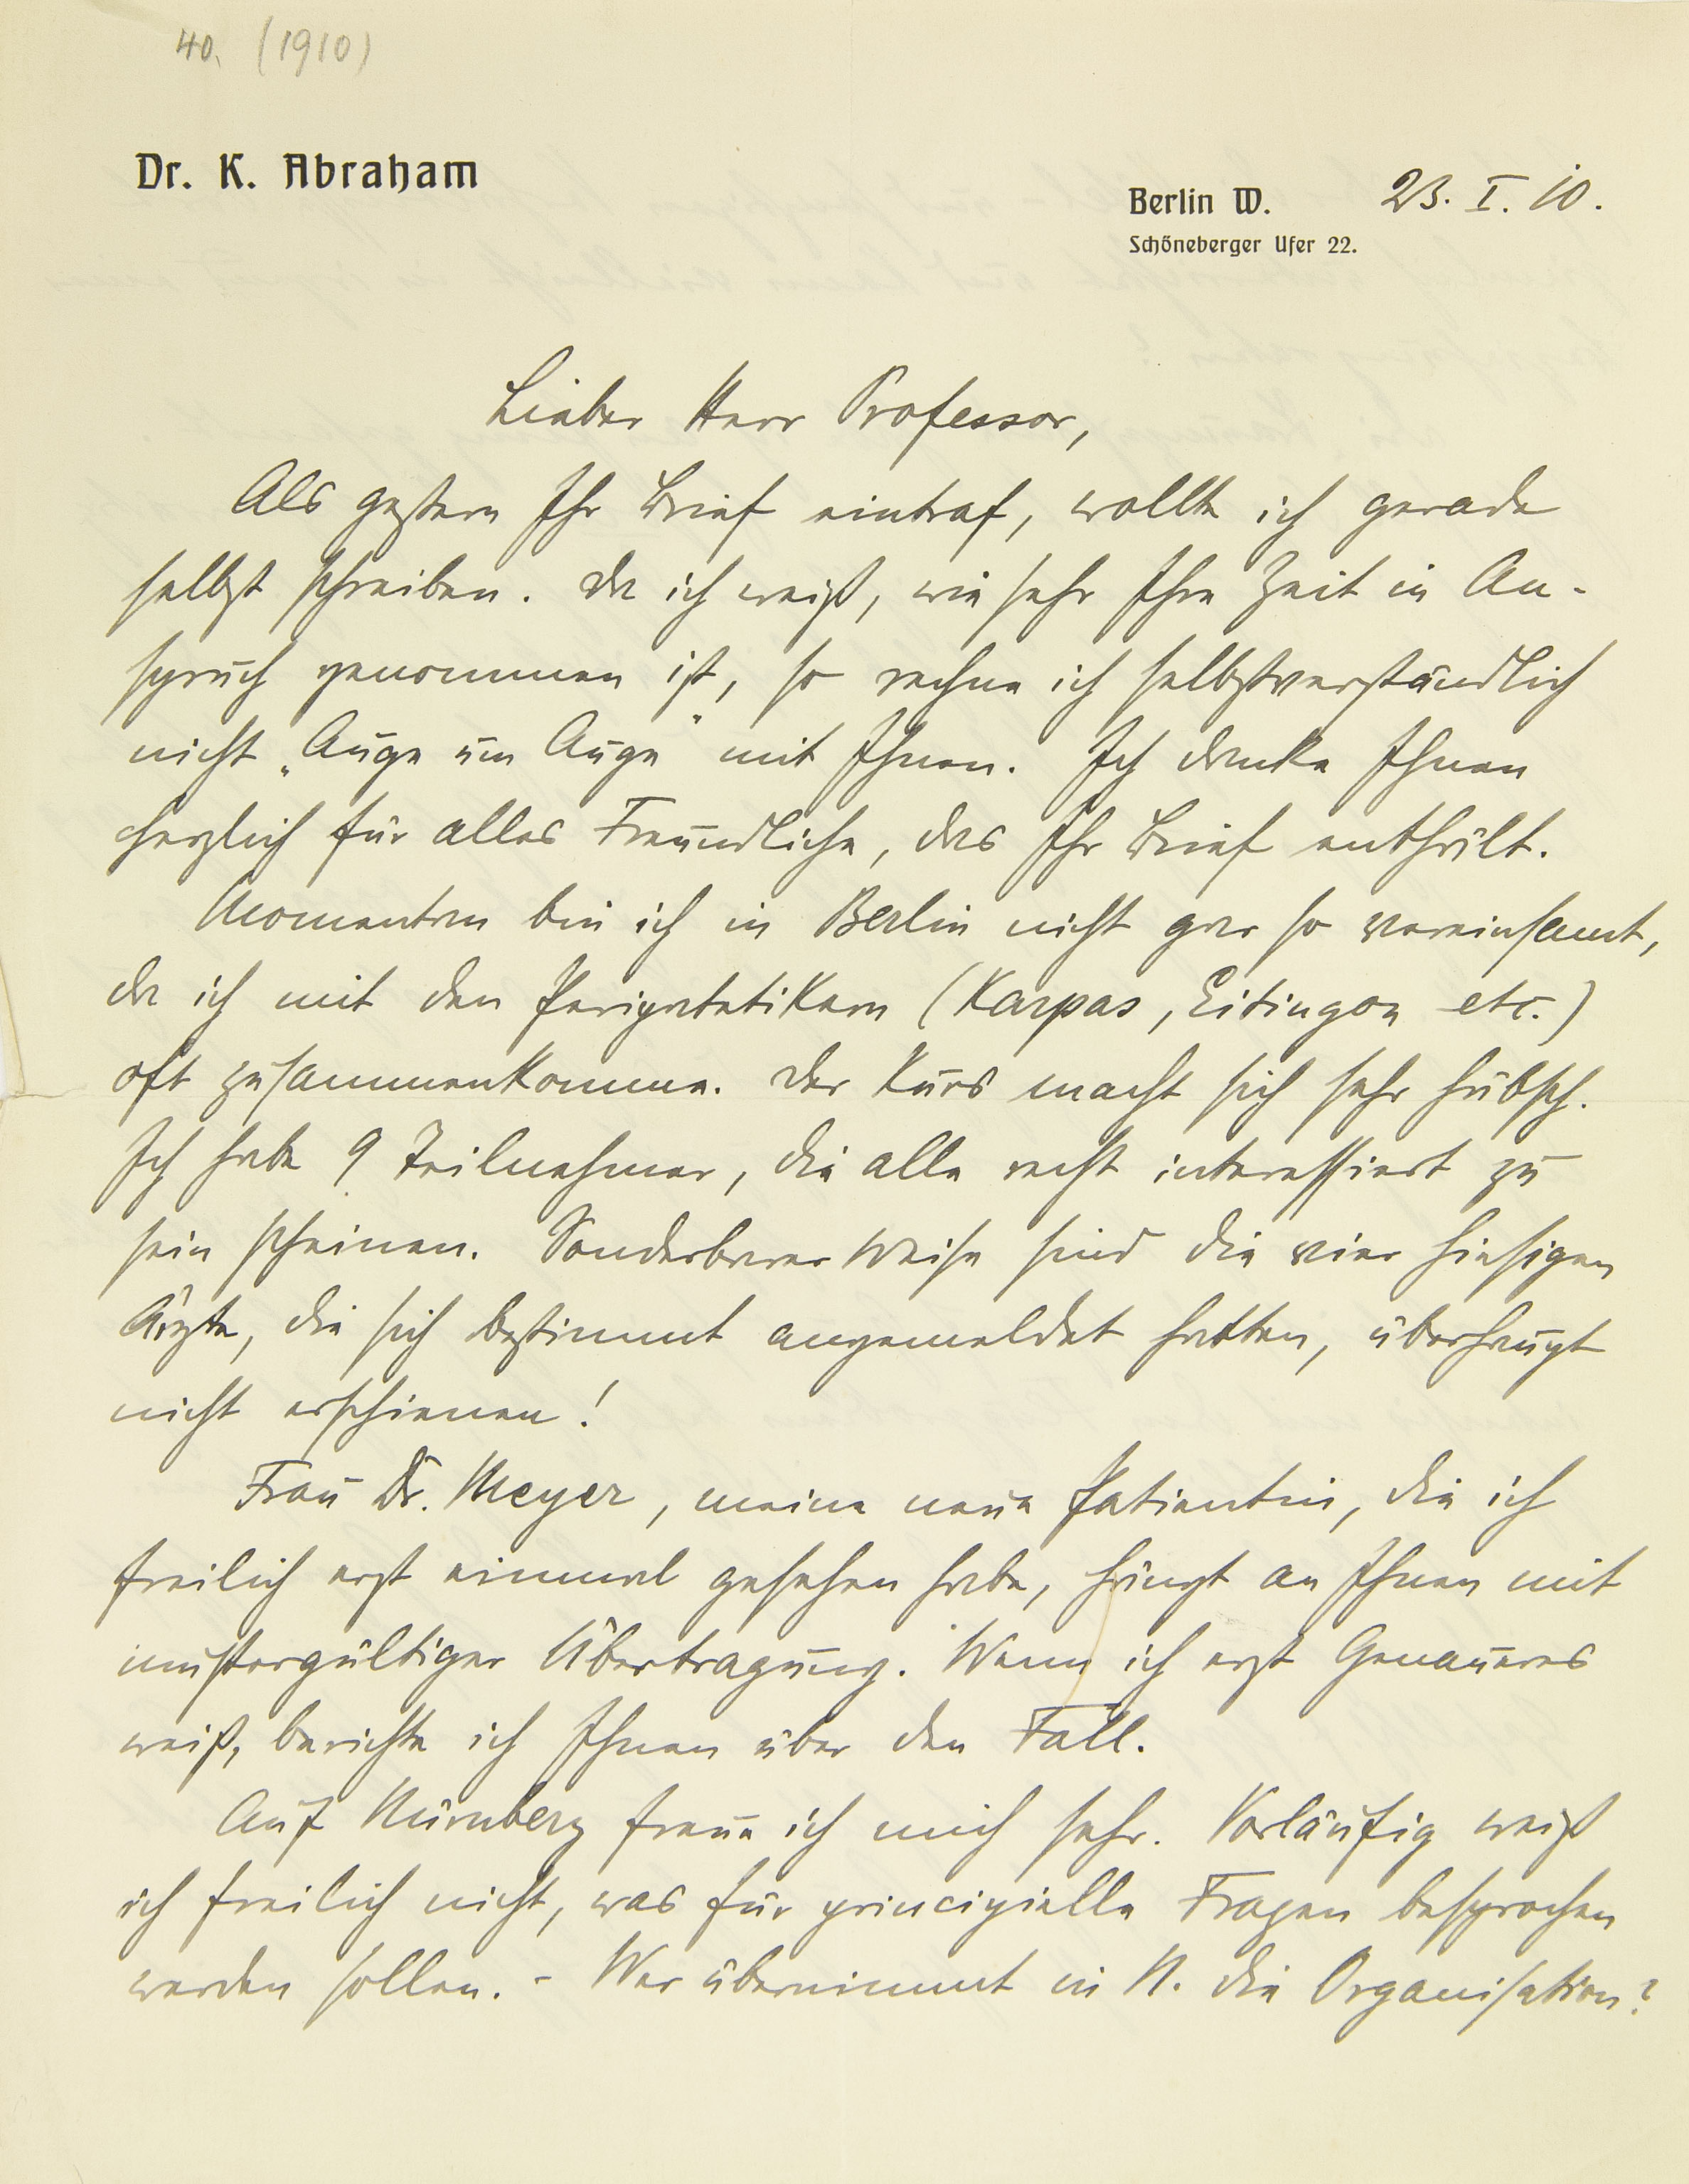 40. (1910)
Dr. K. Abraham
Berlin W. 23. I. 10.
Schöneberger Ufer 22.
Lieber Herr Professor,
Als gestern Ihr Brief eintraf, wollte ich gerade
selbst schreiben. Da ich weiß, wie sehr Ihre Zeit in An-
spruch genommen ist, so rechne ich selbstverständlich
nicht „Auge um Auge" mit Ihnen. Ich danke Ihnen
herzlich für alles Freundliche, das Ihr Brief enthält.
Momentan bin ich in Berlin nicht gar so vereinsamt,
da ich mit den Peripatetikern (Karpas, Eitingon etc.)
oft zusammenkomme. Der Kurs macht sich sehr hübsch.
Ich habe 9 Teilnehmer, die alle recht interessiert zu
sein scheinen. Sonderbarer Weise sind die vier hiesigen
Ärzte, die sich bestimmt angemeldet hatten, überhaupt
nicht erschienen!
Frau Dr. Meyer, meine neue Patientin, die ich
freilich erst einmal gesehen habe, hängt an Ihnen mit
mustergültiger Übertragung. Wenn ich erst Genaueres
weiß, berichte ich Ihnen über den Fall.
Auf Nürnberg freue ich mich sehr. Vorläufig weiß
ich freilich nicht, was für principielle Fragen besprochen
werden sollen. – Wer übernimmt in N. die Organisation?